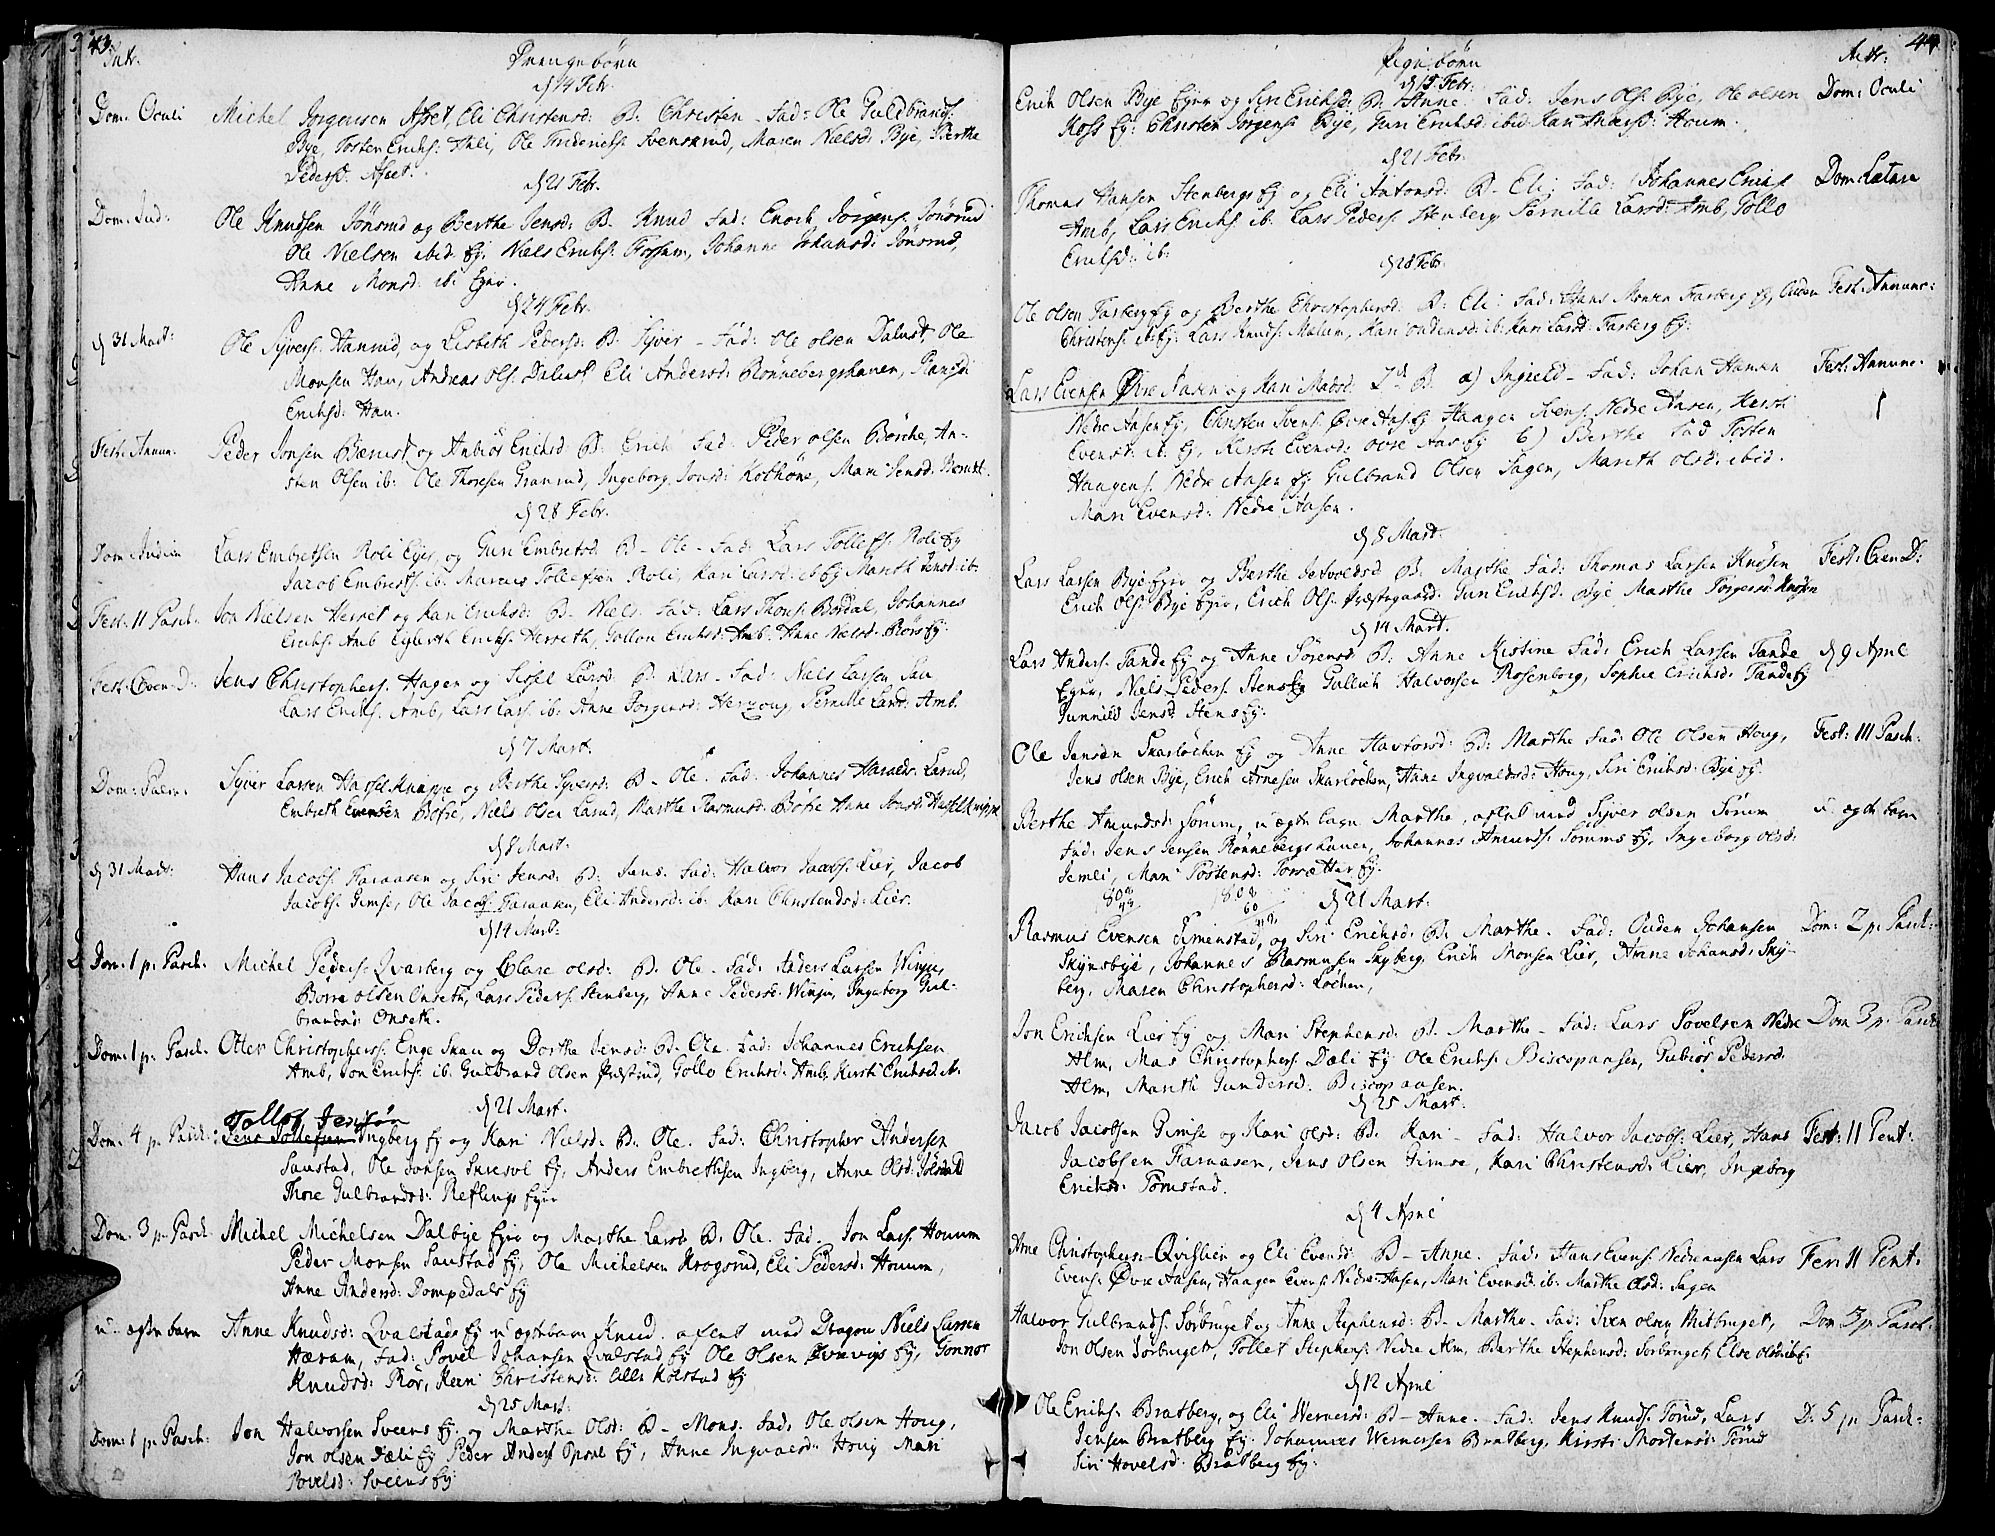 43.
Intr. Drengebørn
d 14 Febr.
Dom. Oculi Michel Jørgensen Afset, Eli Christensd: B. Christen - Fad: Ole Guldbrands:
Bye, Tosten Erichs: Ihli, Ole Friderichs: Svensrud, Maren Nielsd: Bye, Berthe
Pedersd: Afset.
d 21 Febr.
Dom. Jud: Ole Knudsen Jønsrud og Berthe Jensd: B. Knud Fad: Enoch Jørgens: Jønsrud
Ole Nielsen ibid Ey: Niels Erichs: Fossum, Johanne Johansd: Jønsrud,
Anne Monsd: ib: Eyer.
d 24 Febr.
d 31 Mart: Ole Syvers: Hanrud, og Lisbeth Pedersd: B. Syver - Fad: Ole Olsen Dalust, Ole
Monsen Hau, Andreas Ols: Dalust Eli Andersd: Rønnebergshauen, Rangdi
Erichsd: Hau.
Fest: Annun. Peder Jonsen Bærust og Anbiør Erichsd: B. Erich Fad: Peder Olsen Børche, An-
sten Olsen ib: Ole Thoresen Granrud, Ingeborg Jonsd: Kolhöne, Mari Jensd: Berust.
d 28 Febr.
Dom. Judica Lars Embretsen Roli Eyer, og Guri Embretsd: B - Ole - Fad: Lars Tollefs: Roli Ey
Jacob Embrets: ib. Marcus Tollefsen Roli, Kari Larsd: ib Ey Marith Jensd: ib:
Fest: II Pasch. Jon Nielsen Herret og Kari Erichsd: B. Niels. Fad: Lars Thors: Bordal, Johannes
Erichs: Amb Eyberth Erichs: Herreth, Gollou Erichsd: Amb. Anne Nielsd: Røhrs Ey:
Fest: Coen: D. Jens Christophers: Hagen og Sissel Larsd: B. Lars - Fad: Niels Larsen Sau
Lars Erichs: Amb, Lars Lars: ib: Anne Torgersd: Herzoug, Pernille Larsd: Amb.
d 7 Mart.
Dom: Palm. Syver Larsen Hassel Knippe og Berthe Syversd: B - Ole. Fad: Johannes Haralds: Larud,
Embreth Evensen Bøfre, Niels Olsen Larud, Marthe Rasmusd: Bøfre Anne Jonsd: Hasselknippe
d 8 Mart.
d 31 Mart: Hans Jacobs: Faraasen og Siri Jensd: B. Jens. Fad: Halvor Jacobs: Lier, Jacob
Jacobs: Gimse, Ole Jacobs: Faraasen, Eli Andersd: ib: Kari Christensd: Lier.
d 14 Mart:
Dom: 1 p: Pasch. Michel Peders: Qvarberg og Clare Olsd: B. Ole - Fad: Anders Larsen Winju,
Børre Olsen Onseth, Lars Peders: Stenberg, Anne Pedersd: Winju, Ingeborg Gul-
brandsd: Onseth.
Dom: 1 p: Pasch. Otter Christophers: Enge Skau og Dorthe Jensd: B. Ole. Fad: Johannes Erichsen
Amb, Jon Erichs: ib. Gulbrand Olsen Præstrud, Gollo Erichsd: Amb, Kirsti Erichsd: ib.
d 21 Mart.
Tollof Jensen
Dom. 4 p: Pasch: Jens Tollefsen Ingberg Ey og Kari Nielsd: B. Ole. Fad: Christopher Andersen
Saustad, Ole Jonsen Skiesol Ey, Anders Embrethsen Ingberg, Anne Olsd: Jølstad
Thore Gulbrandsd: Reflings Eyer
Dom: 3 p: Pasch. Michel Michelsen Dalbye Eyer og Marthe Larsd B. Ole. Fad. Jon Lars: Houum
Peder Monsen Saustad Ey, Ole Michelsen Krogsrud, Eli Pedersd: Houum,
Anne Andersd: Dompedals Ey
u: ægte barn Anne Knudsd: Qvalstads Ey u: ægte barn Knud. aflet med Dragon Niels Larsen
Hæram, Fad: Povel Johansen Qvalstad Ey Ole Olsen Evavigs Ey, Gonnor
Knudsd: Ror, Kari Christensd: Lille Kolstad Ey
d 25 Mart:
Dom: 1 p: Pasch: Jon Halvorsen Sveens Ey. og Marthe Olsd: B - Mons. Fad, Ole Olsen Houg,
Jon Olsen Dæli Ey Peder Anders Opsal Ey, Anne Ingvalsd: Houg Mari
Povelsd: Sveens Ey.
44
Pigebørn Intr:
d 15 Febr.
Erich Olsen Bye Eyer og Siri Erichsd: B. Anne. Fad: Jens Ols: Bye, Ole Olsen Dom: Oculi
Koss Ey: Christen Jørgens: Bye, Guri Erichsd: ibid. Kari Andersd: Houm.
d 21 Febr.
Thomas Hansen Stenbergs Ey og Eli Antonsd: B - Eli. Fad: Johannes Erichs: Dom: Lætare
Amb, Lars Erichs: ib. Lars Peders: Stenberg Pernille Larsd: Amb, Gollo
Erichsd: ib.
d 28 Febr:
Ole Olsen Farberg Ey og Berthe Christophersd: B. Eli Fad: Hans Monsen Farberg Ey, Auden Fest: Annunc:
Christens: ib: Ey: Lars Knuds: Malum, Kari Audensd: ib: Kari Larsd: Farberg Ey:
Lars Evensen Øvre Aasen og Kari Madsd: 2 B. a) Ingueld - Fad: Johan Hansen Fest: Annunc.
Nedre Aasen Ey, Christen Svens: Øvre Aas Ey Haagen Svens: Nedre Aasen, Kersti
Evensd: ib. Ey, Kersti Evensd: Øvre Aas Ey b) Berthe Fad Tosten
Haagens: Nedre Aasen Ey Gulbrand Olsen Sagen, Marith Olsd: ibid.
Mari Evensd: Nedre Aasen.
d 8 Mart.
Lars Larsen Bye Eyer og Berthe Jetvoldsd: B. Marthe Fad: Thomas Larsen Knøsen Fest: Coen D:
Erich Ols: Bye Eyer, Erich Ols: Præstegaard. Guri Erichsd: Bye Marthe Torgersd: Knøsen
d 14 Mart.
Lars Anders: Tande Ey og Anne Sørensd: B: Anne Kistine Fad: Erich Larsen Tande d 9 April
Eyer, Niels Peders: Stens Ey Gullich Halvorsen Rosenborg, Sophie Erichsd: Tande Ey
Gunnild Jensd: Stens Ey:
Ole Jensen Skarløchen Ey og Anne Havtorsd: B: Marthe Fad: Ole Olsen Houg, Fest: III Pasch:
Jens Olsen Bye, Erich Arnesen Skarløchen, Anne Ingvaldsd: Houg, Siri Erichsd: Bye Ey.
Berthe Amundsd: Sørum, u: ægte barn Marthe, aflet med Syver Olsen Sørum u: ægte barn
Fad: Jens Jensen Rønnebergshauen, Johannes Amunds: Sørums Ey, Ingeborg Olsd:
Semli, Mari Tostensd: Torsætter Ey.
1808 1808
48 60
d 21 Mart:
Rasmus Evensen Gimenstad, og Siri Erichsd: B. Marthe. Fad: Ouden Johansen Dom: 2 p: Pasch:
Skynsbye, Johannes Rasmusen Skyberg Erich Monsen Lier, Anne Johansd: Sky-
berg, Maren Christophersd: Løchen,
Jon Erichsen Lier Ey og Mari Stephensd: B. Marthe - Fad: Lars Povelsen Nedre Dom 3 p. Pasch
Alm, Mas Christophers: Dæli Ey Ole Erichs: Biscopaasen, Gubiör Pedersd:
Alm, Marith Gundersd: Biscopaasen.
d 25 Mart.
Jacob Jacobsen Gimse og Kari Olsd: B. Kari - Fad: Halvor Jacobs: Lier, Hans Fest: II Pent:
Jacobsen Faraasen, Jens Olsen Gimse, Kari Christensd: Lier, Ingeborg
Erichsd: Tømstad.
d 4 April
Arne Christophers: Qvislien og Eli Evensd: B - Anne. Fad: Hans Evens: Nedre aasen Lars Fer: II Pent:
Evens: Øvre Aasen, Haagen Evens: Nedre Aasen, Mari Evensd: ib: Marthe Olsd: Sagen
Halvor Gulbrands: Sørbruget og Anne Stephensd: B - Marthe - Fad: Sven Olsen Mitbruget, Dom 3 p. Pasch:
Jon Olsen Sørbruget, Tollef Stephens: Nedre Alm, Berthe Stephensd: Sørbruget, Else Olsd: ib Ey.
d 12 April
Ole Erichs: Bratberg, og Eli Wernersd: B - Anne. Fad: Jens Knuds: Torud, Lars D: 5 p: Pasch:
Jensen Bratberg Ey. Johannes Wernersen Bratberg, Kirsti Mortensd: Torud
Siri Hovelsd: Bratberg Ey: